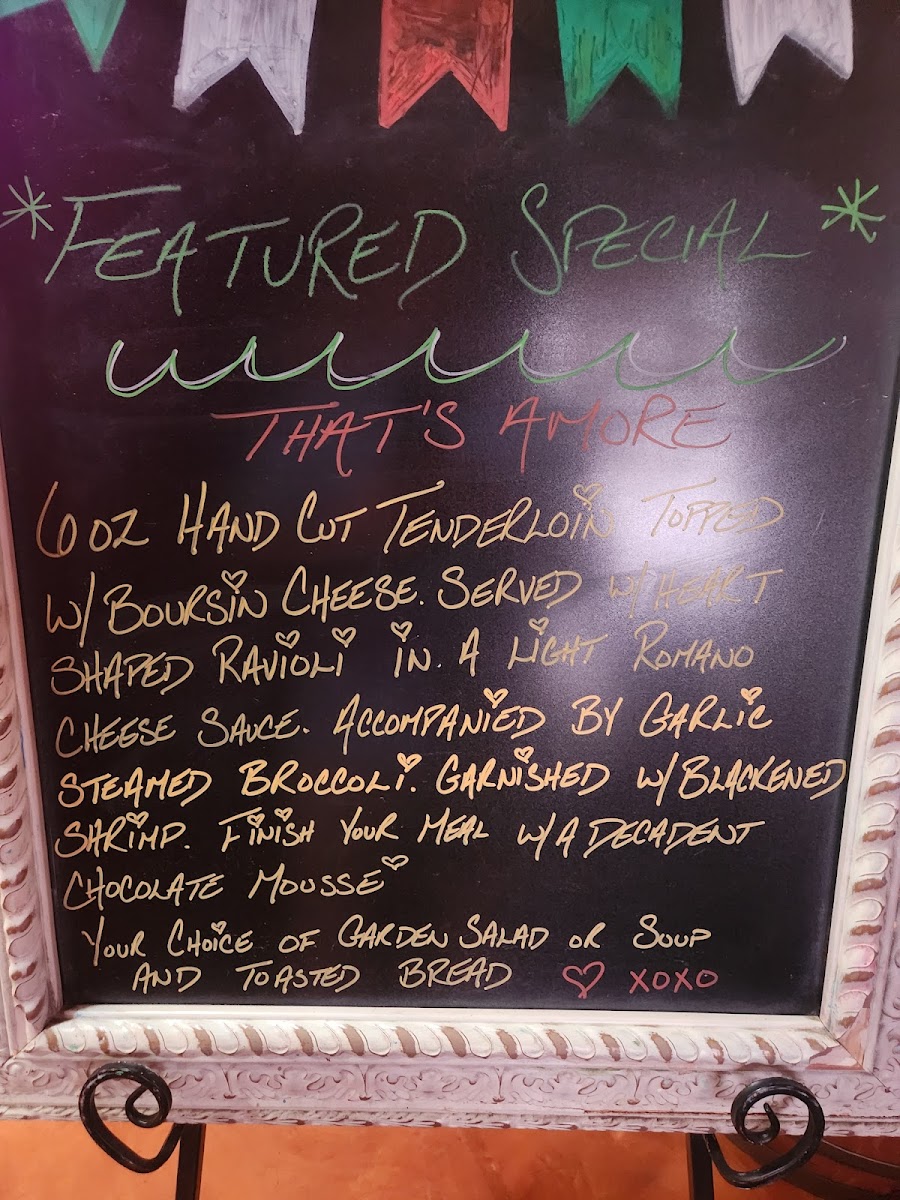 * FEATURED SPECIAL *
THAT'S AMORE
6 OZ HAND CUT TENDERLOIN TOPPED
W/ BOURSIN CHEESE. SERVED W/ HEART
SHAPED RAVIOLI IN A LIGHT ROMANO
CHEESE SAUCE. ACCOMPANIED BY GARLIC
STEAMED BROCCOLI. GARNISHED W/ BLACKENED
SHRIMP. FINISH YOUR MEAL W/ A DECADENT
CHOCOLATE MOUSSE
YOUR CHOICE OF GARDEN SALAD OR SOUP
AND TOASTED BREAD ♡ XOXO